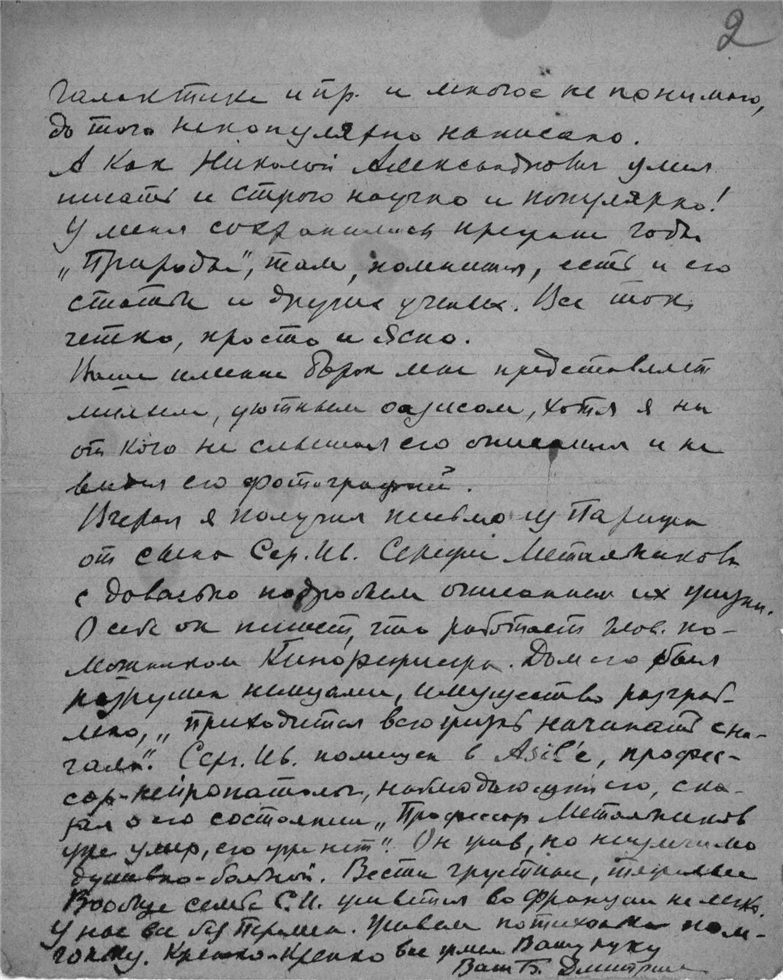 2
галактике и пр. и многое не понимаю,
до того непопулярно написано.
А как Николай Александрович умел
писать и строго научно и популярно!
У меня сохранились прежние годы
„Природы", там, помнится, есть и его
статьи и других ученых. Все так
четко, просто и ясно.
Ваше имение Борок мне представляет
милым, уютным оазисом, хотя я ни
от кого не слышал его описания и не
видел его фотографий.
Вчера я получил письмо из Парижа
от сына Сер. Ив. Сережи Метальникова
с довольно подробным описанием их жизни.
О себе он пишет, что работает глав. по-
мощником кинорежиссера. Дом его был
разрушен немцами, имущество разграб-
лено, „приходится всю жизнь начинать сна-
чала". Сер. Ив. помещен в Asil'е, профес-
сор-нейропатолог, наблюдающий его, ска-
зал о его состоянии „Профессор Метальников
уже умер, его уже нет". Он жив, но неизлечимо
душевно-больной. Вести грустные, тяжелые
Вообще семье С.И. живется во Франции не легко.
У нас все без перемен. Живем потихоньку
Крепко-крепко все жмем Вашу руку
Ваш Б. Дмитрий